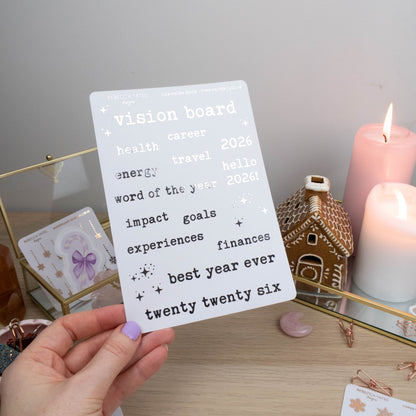 vision board
career
health
2026
travel
energy
hello
2026!
word of the year
impact goals
experiences
finances
best year ever
twenty twenty six